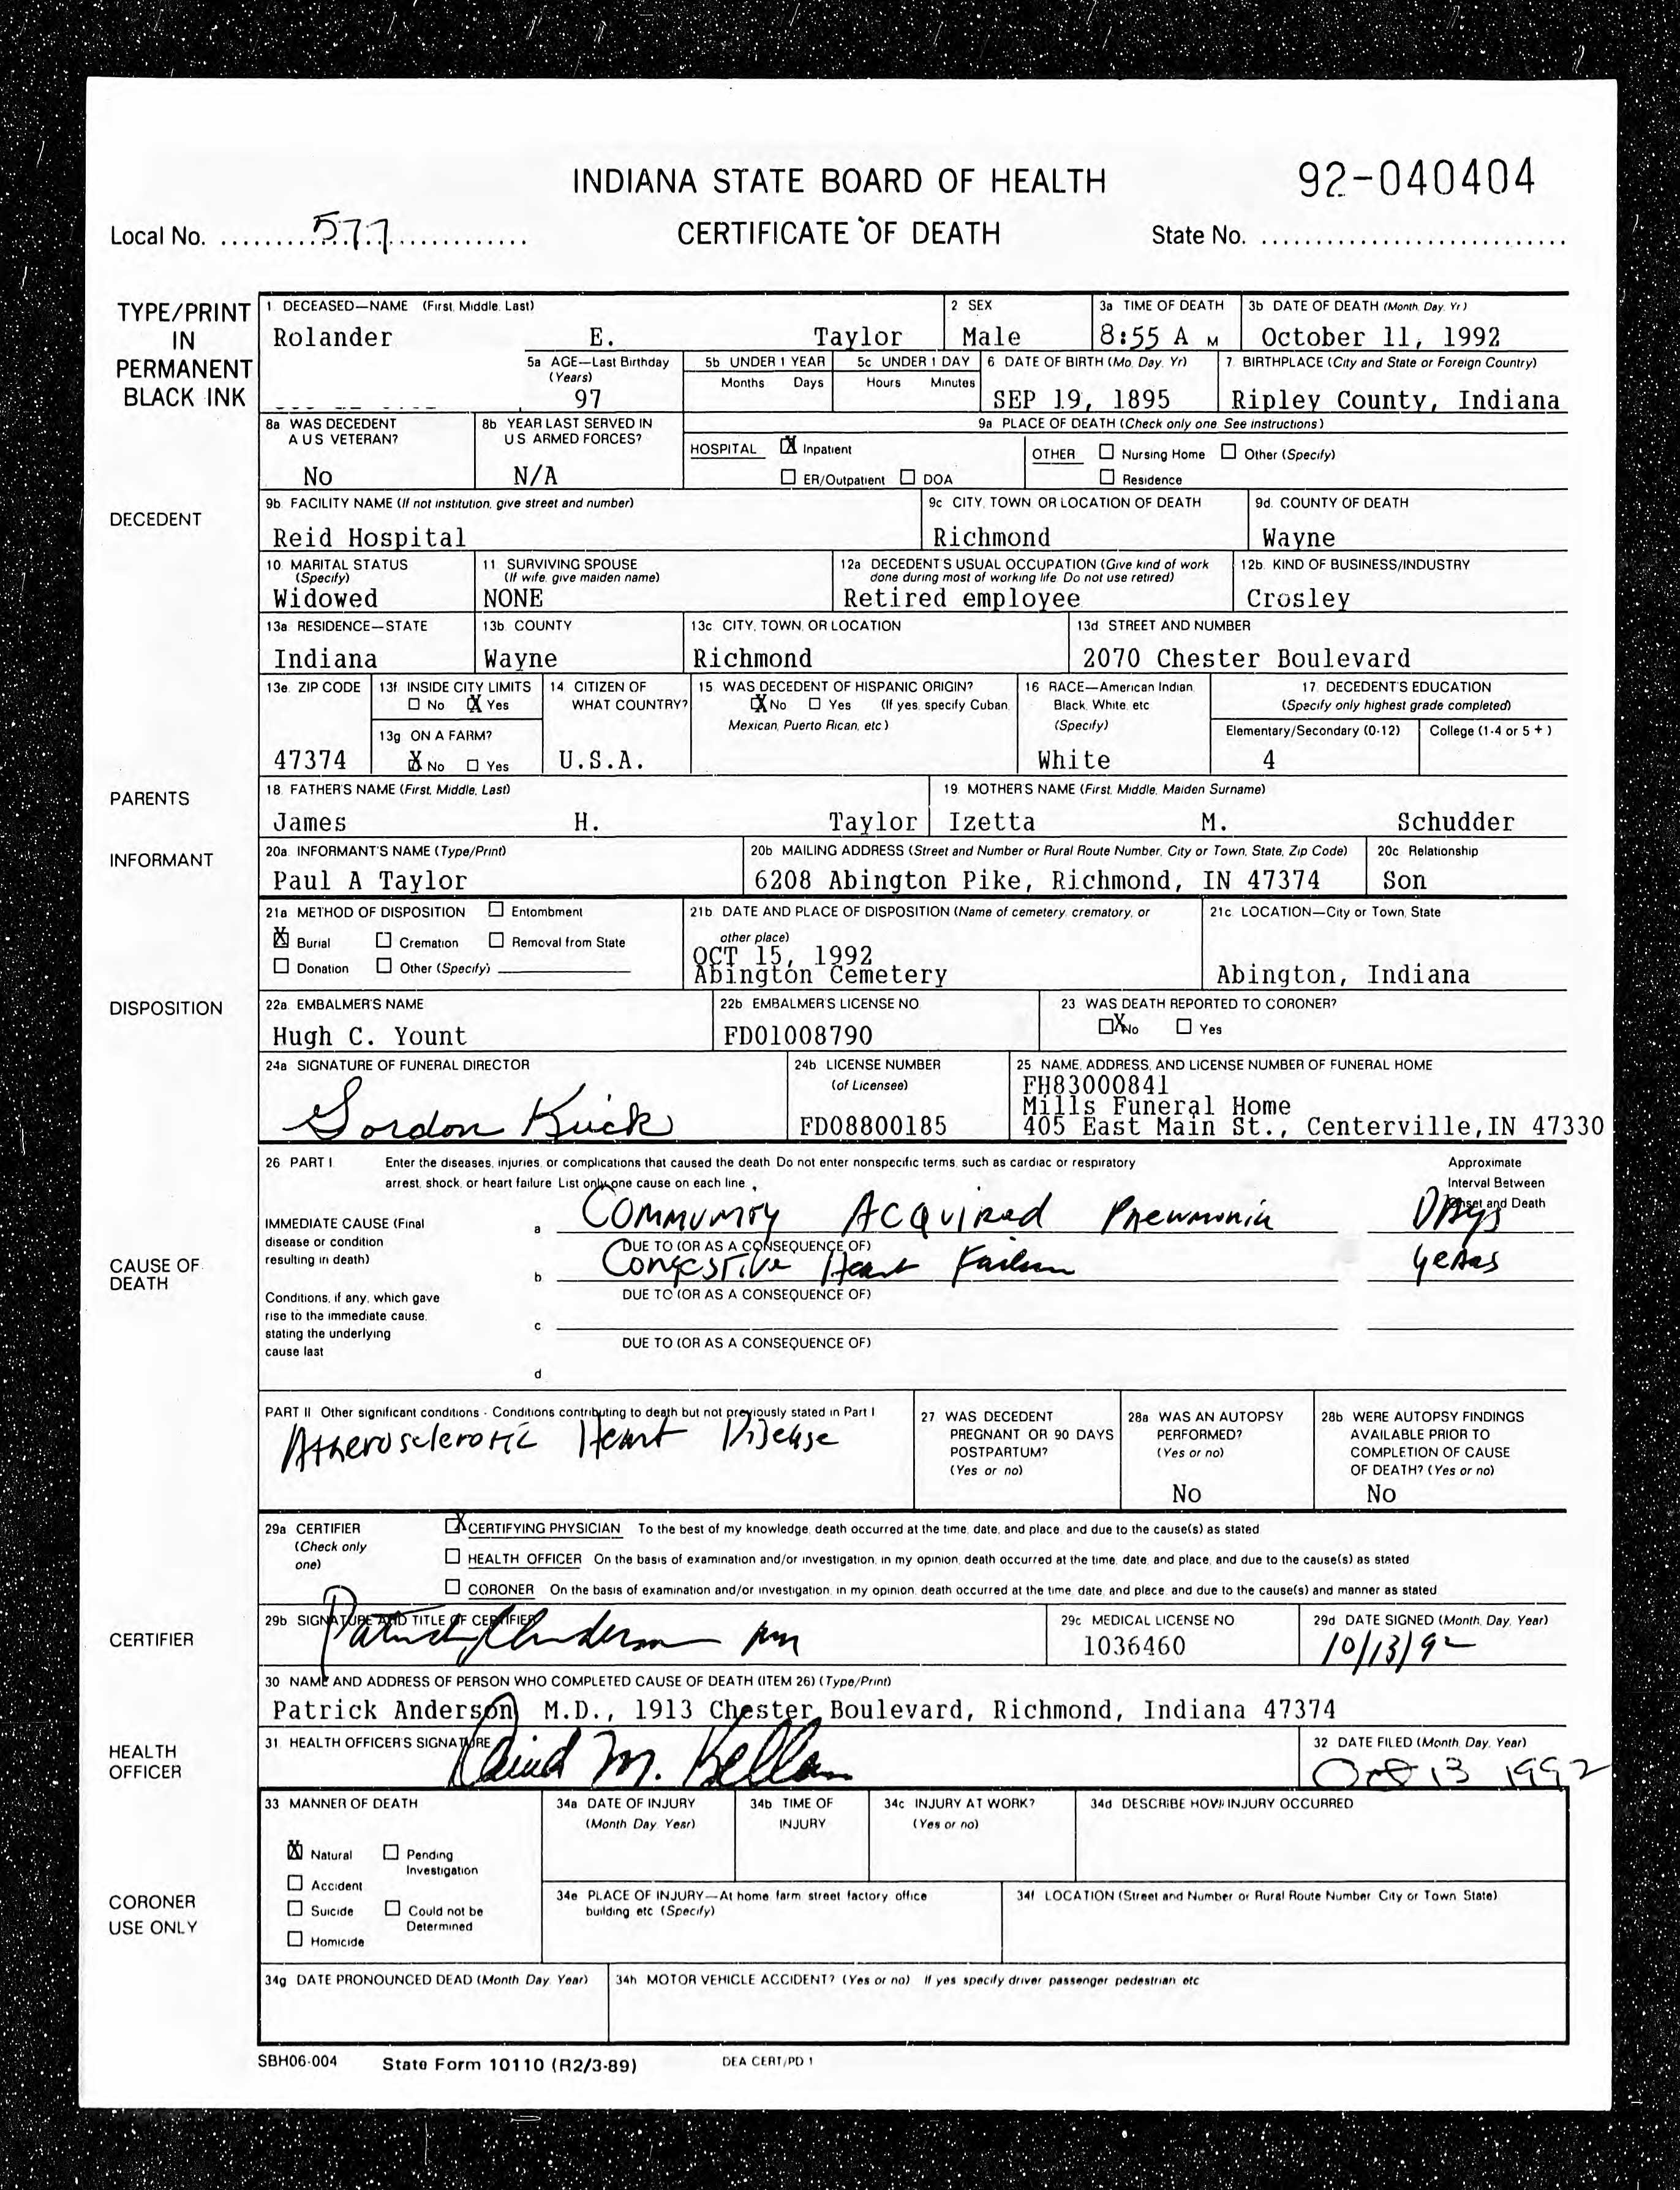 INDIANA STATE BOARD OF HEALTH 92-040404
Local No. 577 CERTIFICATE OF DEATH State No.
TYPE/PRINT IN PERMANENT BLACK INK
1 DECEASED—NAME (First, Middle, Last) 2 SEX 3a TIME OF DEATH 3b DATE OF DEATH (Month, Day, Yr)
Rolander E. Taylor Male 8:55 A M October 11, 1992
5a AGE—Last Birthday (Years) 5b UNDER 1 YEAR 5c UNDER 1 DAY 6 DATE OF BIRTH (Mo, Day, Yr) 7. BIRTHPLACE (City and State or Foreign Country)
Months Days Hours Minutes
97 SEP 19, 1895 Ripley County, Indiana
8a WAS DECEDENT A U S VETERAN? 8b YEAR LAST SERVED IN U S ARMED FORCES? 9a PLACE OF DEATH (Check only one. See instructions)
HOSPITAL X Inpatient OTHER Nursing Home Other (Specify)
No N/A ER/Outpatient DOA Residence
DECEDENT
9b. FACILITY NAME (If not institution, give street and number) 9c CITY, TOWN OR LOCATION OF DEATH 9d. COUNTY OF DEATH
Reid Hospital Richmond Wayne
10 MARITAL STATUS (Specify) 11 SURVIVING SPOUSE (If wife, give maiden name) 12a DECEDENT'S USUAL OCCUPATION (Give kind of work done during most of working life. Do not use retired) 12b. KIND OF BUSINESS/INDUSTRY
Widowed NONE Retired employee Crosley
13a RESIDENCE—STATE 13b COUNTY 13c CITY, TOWN, OR LOCATION 13d STREET AND NUMBER
Indiana Wayne Richmond 2070 Chester Boulevard
13e. ZIP CODE 13f. INSIDE CITY LIMITS 14 CITIZEN OF WHAT COUNTRY? 15 WAS DECEDENT OF HISPANIC ORIGIN? 16 RACE—American Indian, Black, White, etc (Specify) 17. DECEDENT'S EDUCATION (Specify only highest grade completed)
No X Yes X No Yes (If yes, specify Cuban, Mexican, Puerto Rican, etc)
13g ON A FARM? Elementary/Secondary (0-12) College (1-4 or 5 +)
47374 X No Yes U.S.A. White 4
PARENTS
18. FATHER'S NAME (First, Middle, Last) 19. MOTHER'S NAME (First, Middle, Maiden Surname)
James H. Taylor Izetta M. Schudder
INFORMANT
20a. INFORMANT'S NAME (Type/Print) 20b MAILING ADDRESS (Street and Number or Rural Route Number, City or Town, State, Zip Code) 20c. Relationship
Paul A Taylor 6208 Abington Pike, Richmond, IN 47374 Son
21a METHOD OF DISPOSITION Entombment 21b DATE AND PLACE OF DISPOSITION (Name of cemetery, crematory, or other place) 21c LOCATION—City or Town, State
X Burial Cremation Removal from State OCT 15, 1992
Donation Other (Specify) Abington Cemetery Abington, Indiana
DISPOSITION
22a EMBALMER'S NAME 22b EMBALMER'S LICENSE NO 23 WAS DEATH REPORTED TO CORONER?
Hugh C. Yount FD01008790 X No Yes
24a SIGNATURE OF FUNERAL DIRECTOR 24b LICENSE NUMBER (of Licensee) 25 NAME, ADDRESS, AND LICENSE NUMBER OF FUNERAL HOME
FH83000841
Mills Funeral Home
Gordon Kuck FD08800185 405 East Main St., Centerville,IN 47330
26 PART I Enter the diseases, injuries, or complications that caused the death. Do not enter nonspecific terms, such as cardiac or respiratory arrest, shock, or heart failure. List only one cause on each line.
Approximate Interval Between Onset and Death
CAUSE OF DEATH
IMMEDIATE CAUSE (Final disease or condition resulting in death) a Community Acquired Pneumonia Days
DUE TO (OR AS A CONSEQUENCE OF)
b Congestive Heart Failure years
Conditions, if any, which gave rise to the immediate cause, stating the underlying cause last
DUE TO (OR AS A CONSEQUENCE OF)
c
DUE TO (OR AS A CONSEQUENCE OF)
d
PART II Other significant conditions - Conditions contributing to death but not previously stated in Part I
Atherosclerotic Heart Disease
27 WAS DECEDENT PREGNANT OR 90 DAYS POSTPARTUM? (Yes or no)
28a WAS AN AUTOPSY PERFORMED? (Yes or no)
No
28b WERE AUTOPSY FINDINGS AVAILABLE PRIOR TO COMPLETION OF CAUSE OF DEATH? (Yes or no)
No
29a CERTIFIER (Check only one)
X CERTIFYING PHYSICIAN To the best of my knowledge, death occurred at the time, date, and place, and due to the cause(s) as stated
HEALTH OFFICER On the basis of examination and/or investigation, in my opinion, death occurred at the time, date, and place, and due to the cause(s) as stated
CORONER On the basis of examination and/or investigation, in my opinion, death occurred at the time, date, and place, and due to the cause(s) and manner as stated
CERTIFIER
29b SIGNATURE AND TITLE OF CERTIFIER 29c MEDICAL LICENSE NO 29d DATE SIGNED (Month, Day, Year)
Patrick Anderson 1036460 10/13/92
30 NAME AND ADDRESS OF PERSON WHO COMPLETED CAUSE OF DEATH (ITEM 26) (Type/Print)
Patrick Anderson M.D., 1913 Chester Boulevard, Richmond, Indiana 47374
HEALTH OFFICER
31 HEALTH OFFICER'S SIGNATURE 32 DATE FILED (Month, Day, Year)
M. Oct 13 1992
33 MANNER OF DEATH 34a DATE OF INJURY (Month, Day, Year) 34b TIME OF INJURY 34c INJURY AT WORK? (Yes or no) 34d DESCRIBE HOW INJURY OCCURRED
X Natural Pending Investigation
Accident
Suicide Could not be Determined
Homicide
CORONER USE ONLY
34e PLACE OF INJURY—At home, farm, street, factory, office building, etc (Specify) 34f LOCATION (Street and Number or Rural Route Number, City or Town, State)
34g DATE PRONOUNCED DEAD (Month, Day, Year) 34h MOTOR VEHICLE ACCIDENT? (Yes or no) If yes, specify driver, passenger, pedestrian, etc
SBH06-004 State Form 10110 (R2/3-89) DEA CERT/PD 1